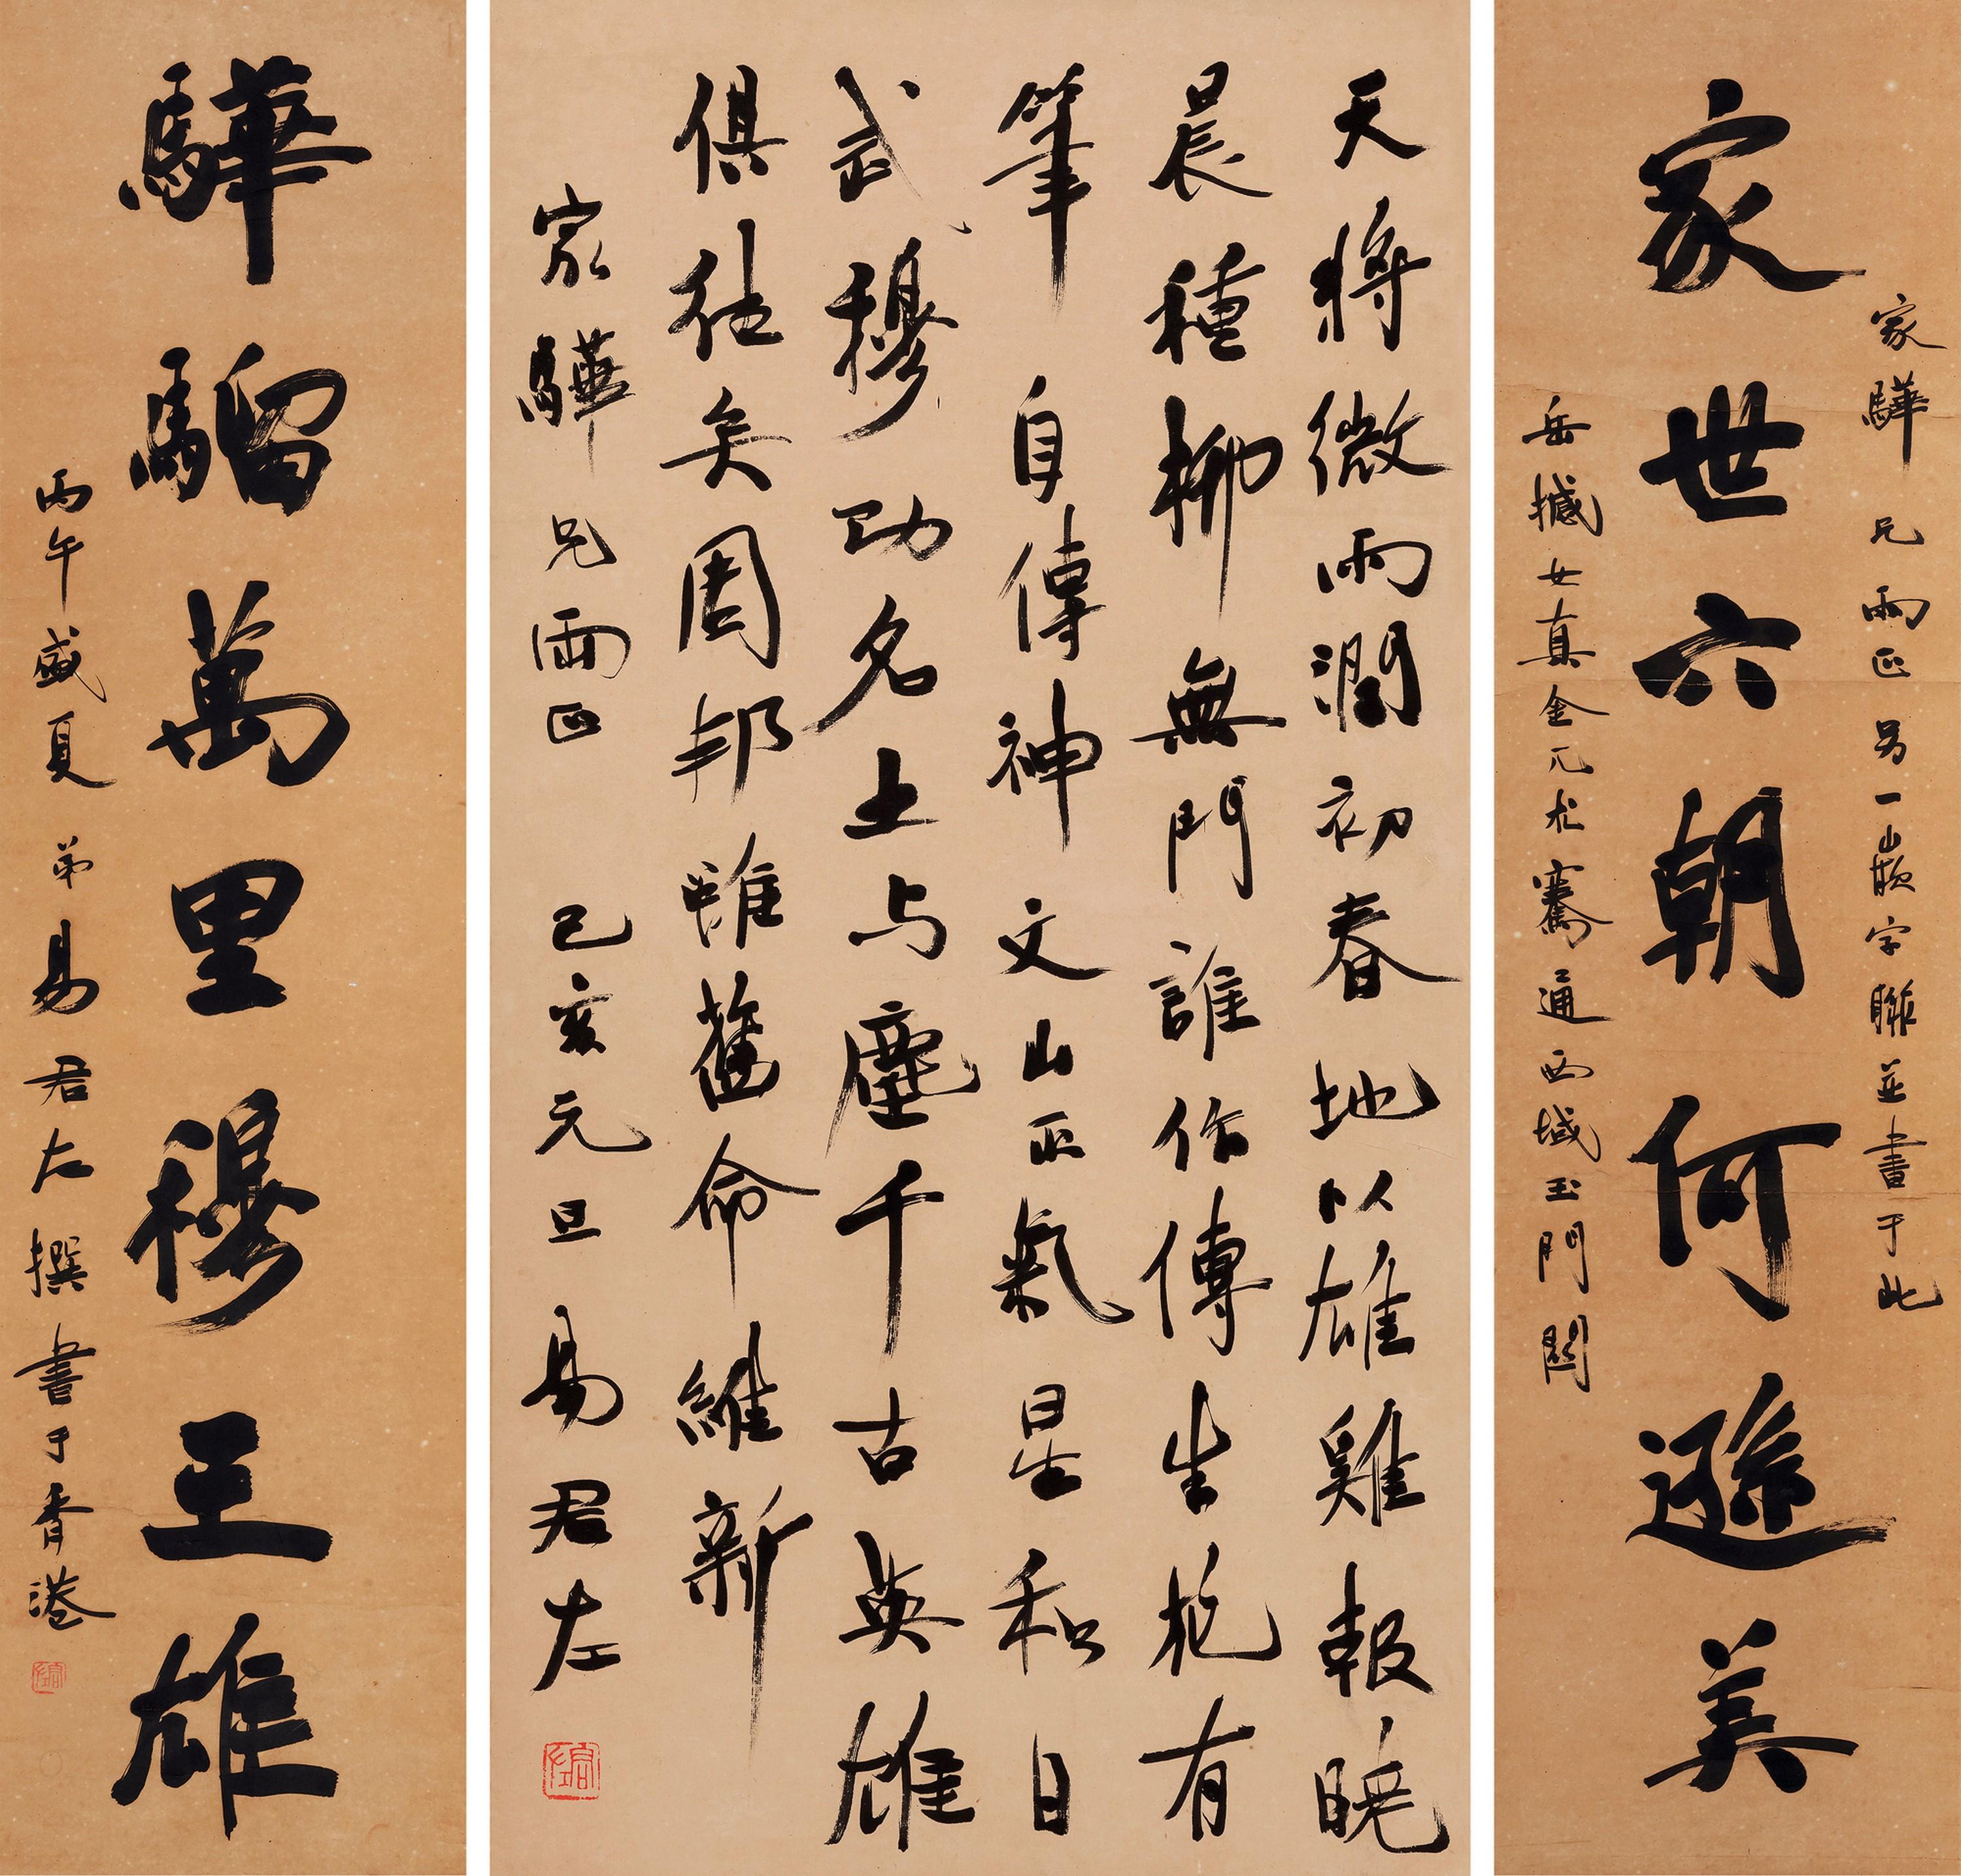 家驊兄兩正 另一嵌字聯並書于此
家世六朝何遜美
岳撼女真金兀朮騫通西域玉門關
天將微雨潤初春地以雄雞報曉
晨種柳無門誰作傳生花有
筆自傳神文山正氣星和日
武穆功名土与塵千古英雄
俱往矣周邦雖舊命維新
家驊兄兩正 己亥元旦 易君左
驊騮萬里穆王雄
丙午盛夏 弟易君左撰書于香港